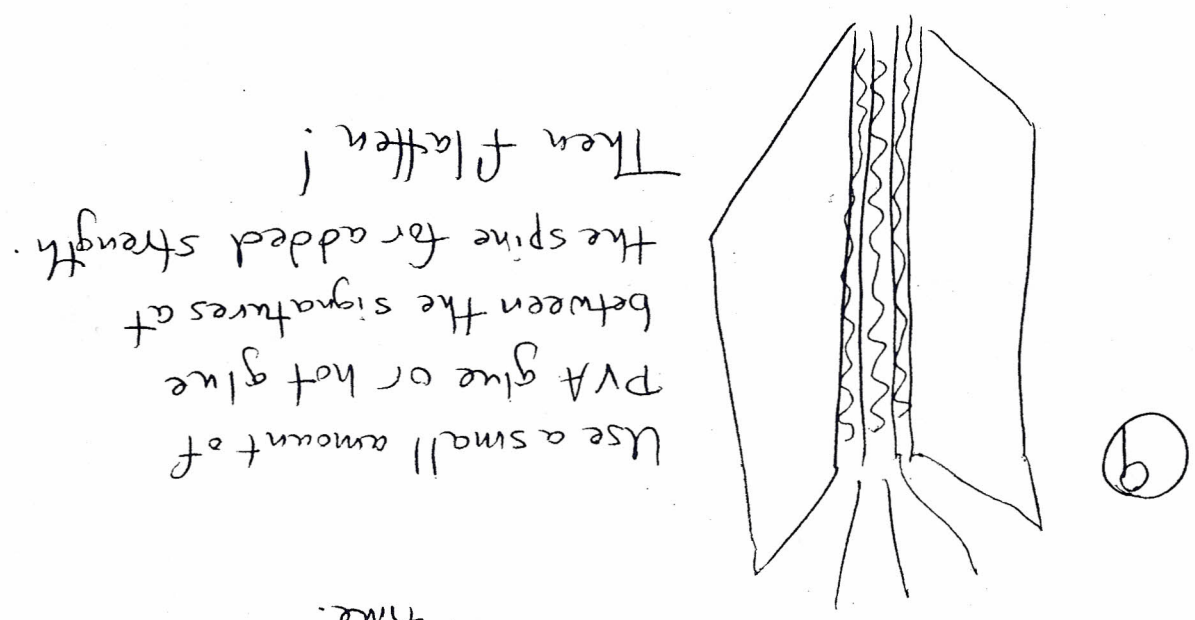 time.
9
Use a small amount of
PVA glue or hot glue
between the signatures at
the spine for added strength.
Then flatten!